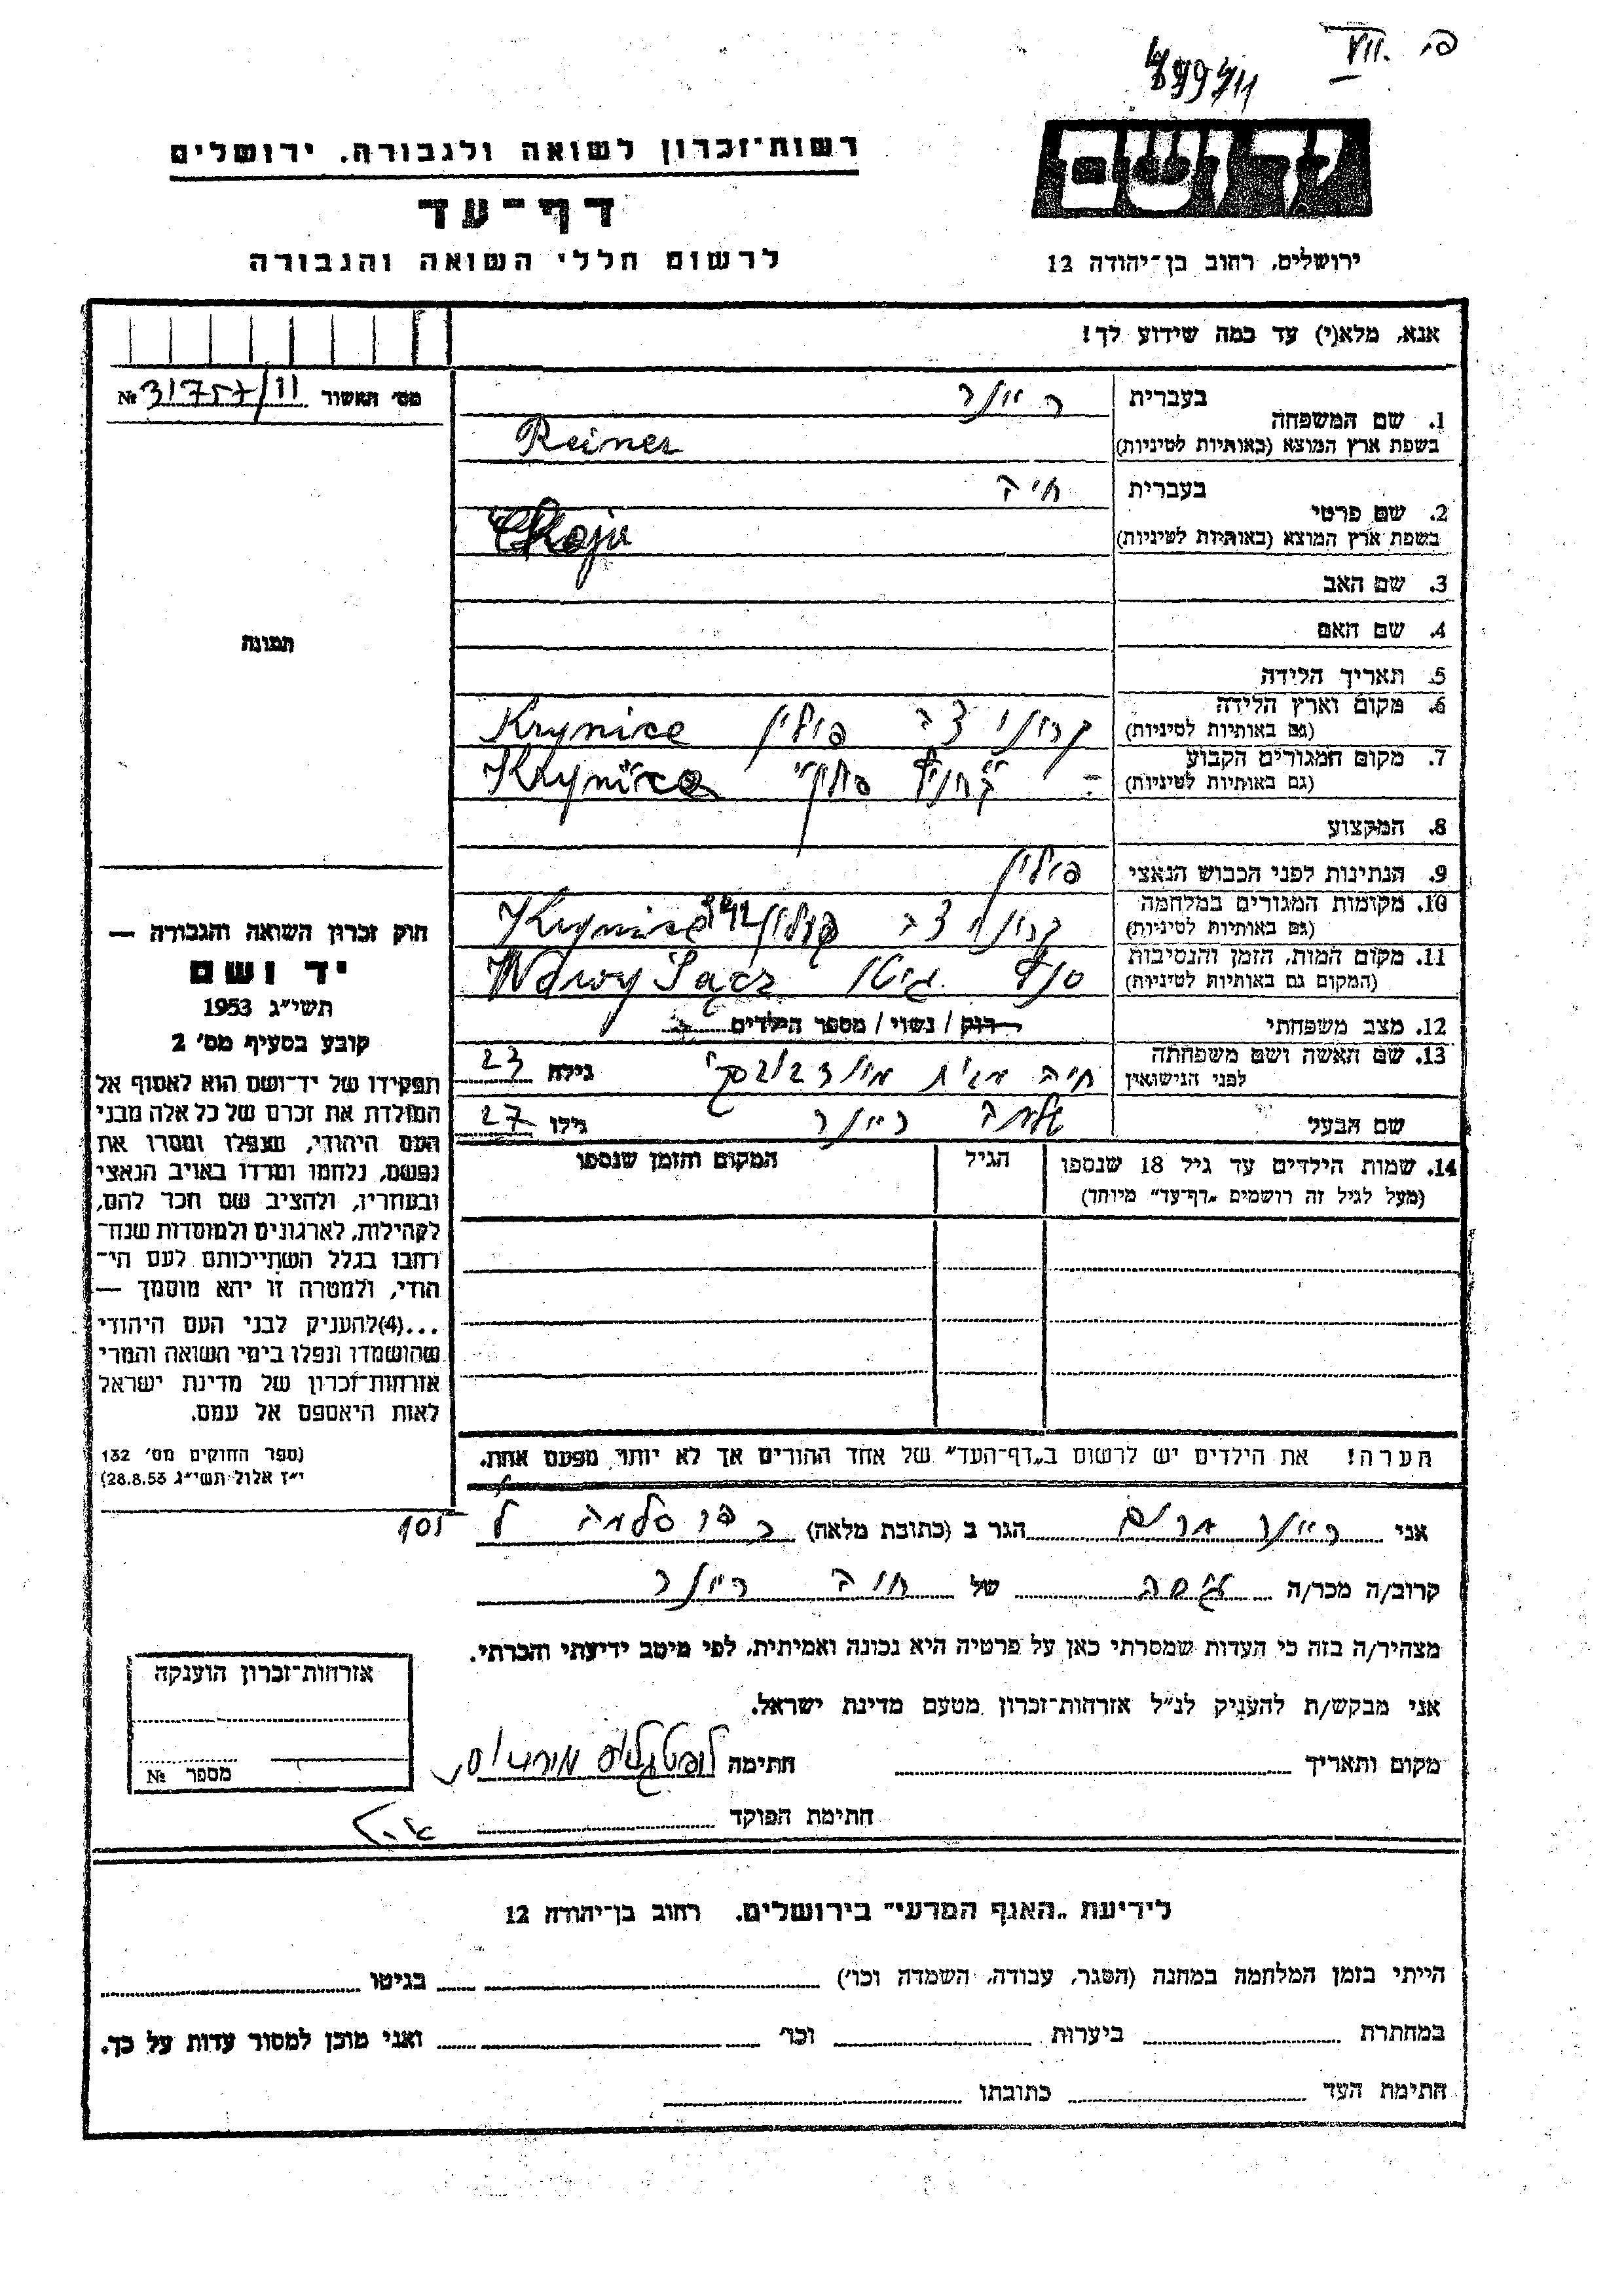 פ. VII.
יד ושם
רשות־זכרון לשואה ולגבורה, ירושלים
דף־עד
לרשום חללי השואה והגבורה
ירושלים, רחוב בן־יהודה 12
אנא, מלא(י) עד כמה שידוע לך!
מס׳ האשור № 31757/II
1. שם המשפחה
בעברית ריינר
בשפת ארץ המוצא (באותיות לטיניות) Reiner
2. שם פרטי
בעברית חיה
בשפת ארץ המוצא (באותיות לטיניות) Chaja
3. שם האב
4. שם האם
5. תאריך הלידה
6. מקום וארץ הלידה
(גם באותיות לטיניות) קרוניצה פולין Krynice
7. מקום המגורים הקבוע
(גם באותיות לטיניות) פולין Krynica
8. המקצוע
9. הנתינות לפני הכבוש הנאצי פולין
10. מקומות המגורים במלחמה
(גם באותיות לטיניות) קרוניצה פולין Krynice
11. מקום המות, הזמן והנסיבות
(המקום גם באותיות לטיניות) גיטו Nowy Sącz
12. מצב משפחתי רוק / נשוי / מספר הילדים
13. שם האשה ושם משפחתה
לפני הנישואין חיה מבית גילה 23
שם הבעל שלמה ריינר גילו 27
14. שמות הילדים עד גיל 18 שנספו
(מעל לגיל זה רושמים „דף־עד״ מיוחד)
הגיל
המקום והזמן שנספו
הערה! את הילדים יש לרשום ב„דף־העד״ של אחד ההורים אך לא יותר מפעם אחת.
תמונה
חוק זכרון השואה והגבורה —
יד ושם
תשי״ג 1953
קובע בסעיף מס׳ 2
תפקידו של יד־ושם הוא לאסוף אל
המולדת את זכרם של כל אלה מבני
העם היהודי, שנפלו ומסרו את
נפשם, נלחמו ומרדו באויב הנאצי
ובעוזריו, ולהציב שם וזכר להם,
לקהילות, לארגונים ולמוסדות שנח־
רבו בגלל השתייכותם לעם הי־
הודי, ולמטרה זו יהא מוסמך —
...(4) להעניק לבני העם היהודי
שהושמדו ונפלו בימי השואה והמרי
אזרחות־זכרון של מדינת ישראל
לאות היאספם אל עמם.
(ספר החוקים מס׳ 132
י״ז אלול תשי״ג 28.8.53)
אני ריינר מרים הגר ב (כתובת מלאה)
קרוב/ה מכר/ה של חיה ריינר
מצהיר/ה בזה כי העדות שמסרתי כאן על פרטיה היא נכונה ואמיתית, לפי מיטב ידיעתי והכרתי.
אני מבקש/ת להעניק לנ״ל אזרחות־זכרון מטעם מדינת ישראל.
מקום ותאריך חתימה
חתימת הפוקד
אזרחות־זכרון הוענקה
מספר №
לידיעת „האגף המדעי״ בירושלים, רחוב בן־יהודה 12
הייתי בזמן המלחמה במחנה (הסגר, עבודה, השמדה וכו׳) בגיטו
במחתרת ביערות וכו׳ ואני מוכן למסור עדות על כך.
חתימת העד כתובתו